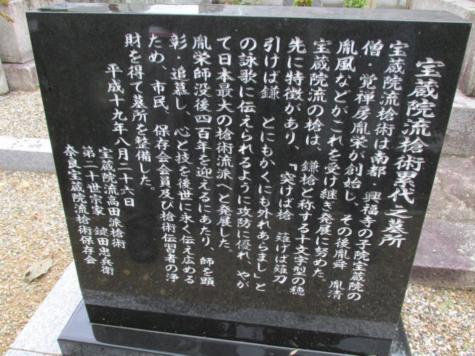 宝蔵院流槍術累代之墓所
宝蔵院流槍術は南都 興福寺の子院宝蔵院の
僧・覚禅房胤栄が創始し、その後胤舜 胤清
胤風などがこれを受け継ぎ発展に努めた。
宝蔵院流の槍は、鎌槍と称する十文字型の穂
先に特徴があり、『突けば槍 薙げば薙刀
引けば鎌 とにもかくにも外れあらまし』と
の詠歌に伝えられるように攻防に優れ、やが
て日本最大の槍術流派へと発展した。
胤栄師没後四百年を迎えるにあたり、師を顕
彰・追慕し、心と技を後世に永く伝え広める
ため、市民、保存会会員及び槍術伝習者の浄
財を得て墓所を整備した。
平成十九年八月二十六日
宝蔵院流高田派槍術
第二十世宗家 鍵田忠兵衛
奈良宝蔵院流槍術保存会